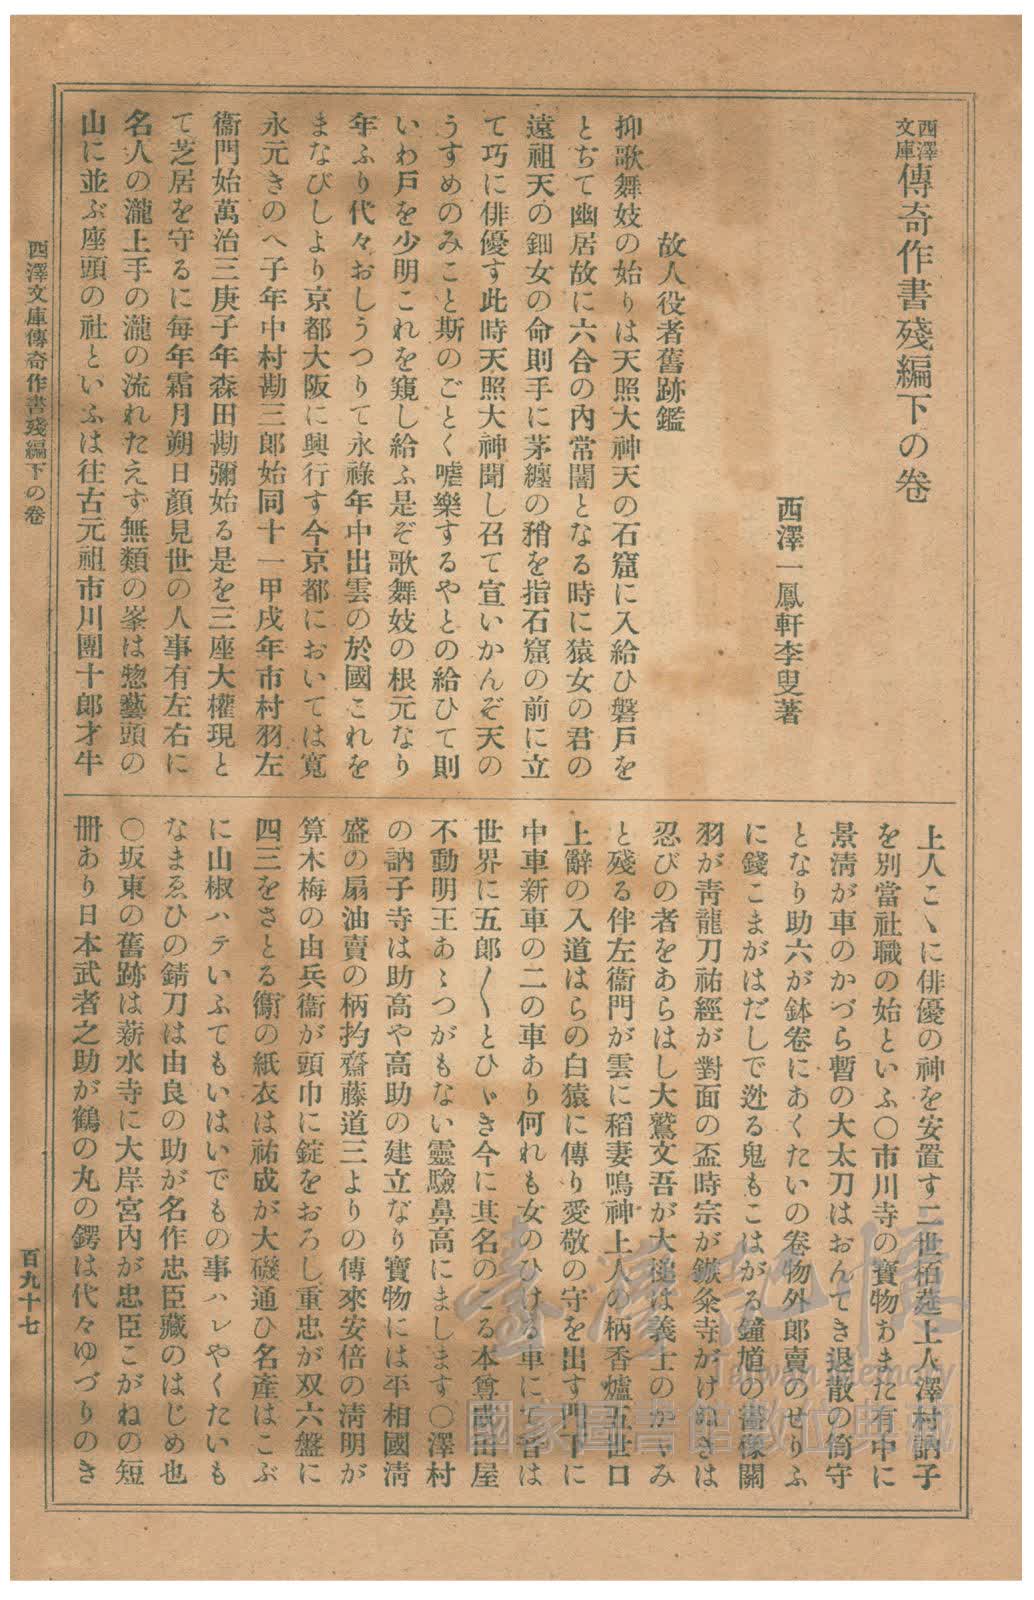 西澤文庫 傳奇作書殘編下の卷
西澤一鳳軒李叟著
故人役者舊跡鑑
抑歌舞妓の始りは天照大神天の石窟に入給ひ磐戸を
とぢて幽居故に六合の內常闇となる時に猿女の君の
遠祖天の鈿女の命則手に茅纏の矟を指石窟の前に立
て巧に俳優す此時天照大神聞し召て宣いかんぞ天の
うすめのみこと斯のごとく㖸樂するやとの給ひて則
いわ戸を少明これを窺し給ふ是ぞ歌舞妓の根元なり
年ふり代々おしうつりて永祿年中出雲の於國これを
まなびしより京都大阪に興行す今京都においては寬
永元きのへ子年中村勘三郎始同十一甲戌年市村羽左
衞門始萬治三庚子年森田勘彌始る是を三座大權現と
て芝居を守るに每年霜月朔日顏見世の人事有左右に
名人の瀧上手の瀧の流れたえず無類の峯は惣藝頭の
山に並ぶ座頭の社といふは往古元祖市川團十郎才牛
上人こゝに俳優の神を安置す二世栢莚上人澤村訥子
を別當社職の始といふ〇市川寺の寶物あまた有中に
景淸が車のかづら暫の大太刀はおんてき退散の爲守
となり助六が鉢卷にあくたいの卷物外郎賣のせりふ
に錢こまがはだしで迯る鬼もこはがる鐘馗の畫像關
羽が靑龍刀祐經が對面の盃時宗が鏃灸寺がけぬきは
忍びの者をあらはし大鷲文吾が大槌は義士のかゞみ
と殘る伴左衞門が雲に稻妻鳴神上人の柄香爐五世口
上辭の入道はらの白猿に傳り愛敬の守を出す門下に
中車新車の二の車あり何れも女のひける車にて昔は
世界に五郎〳〵とひゞき今に其名のこる本尊成田屋
不動明王あゝつがもない靈驗鼻高にまします〇澤村
の訥子寺は助高や高助の建立なり寶物には平相國淸
盛の扇油賣の柄杓齋藤道三よりの傳來安倍の淸明が
算木梅の由兵衞が頭巾に錠をおろし重忠が双六盤に
四三をさとる衞の紙衣は祐成が大磯通ひ名產はこぶ
に山椒ハテいふてもいはいでもの事ハレやくたいも
なまゑひの錆刀は由良の助が名作忠臣藏のはじめ也
〇坂東の舊跡は薪水寺に大岸宮內が忠臣こがねの短
册あり日本武者之助が鶴の丸の鍔は代々ゆづりのき
西澤文庫傳奇作書殘編下の卷
百九十七
臺灣記憶
Taiwan Memory
國家圖書館數位典藏